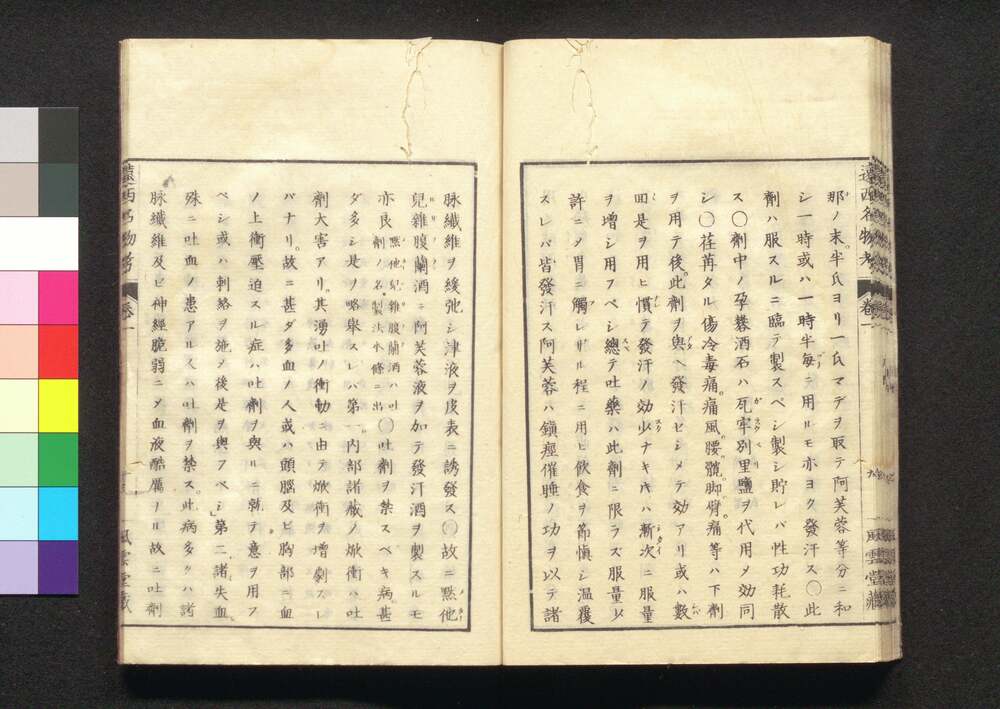 遠西名物考　卷一
風雲堂藏
那ノ末。半氏ヨリ一氏マデヲ取テ阿芙蓉等分ニ和
シ一時或ハ一時半每ニ用ルモ亦ヨク發汗ス〇此
劑ハ服スルニ臨テ製スベシ製シ貯レバ性功耗散
ス〇劑中ノ孕礬酒石ハ瓦牢別里鹽ヲ代用メ効同
シ〇荏苒タル傷冷毒痛。痛風。腰髖脚臂痛等ハ下劑
ヲ用テ後。此劑ヲ與ヘ發汗セシメテ効アリ或ハ數
回是ヲ用ヒ慣テ發汗ノ効少ナキハ漸次ニ服量
ヲ增シ用フベシ總テ吐藥ハ此劑ニ限ラズ服量少
許ニメ胃ニ觸レザル程ニ用ヒ飮食ヲ節愼シ溫覆
スレバ皆發汗ス阿芙蓉ハ鎭痙催睡ノ功ヲ以テ諸
脉纖維ヲ緩弛シ津液ヲ皮表ニ誘發ス〇故ニ㷿他
兒雜腹蘭酒ニ阿芙蓉液ヲ加テ發汗酒ヲ製スルモ
亦良 㷿他兒雜腹蘭酒ハ吐劑ノ名製法本條ニ出 〇吐劑ヲ禁スベキ病。甚
ダ多シ是ノ略擧スレバ第一。內部諸藏ノ焮衝ハ吐
劑大害アリ。其湧吐ノ衝動ニ由テ焮衝ヲ增劇スレ
バナリ。故ニ甚ダ多血ノ人或ハ頭腦及ビ胸部ニ血
ノ上衝壓迫スル症ハ吐劑ヲ與ルニ就テ意ヲ用フ
ベシ或ハ刺絡ヲ施メ後是ヲ與フベシ第二。諸失血。
殊ニ吐血ノ患アル人ハ吐劑ヲ禁ス。此病多クハ諸
脉纖維及ビ神經脆弱ニメ血液酷厲ナル故ニ吐劑
遠西名物考　卷一
風雲堂藏